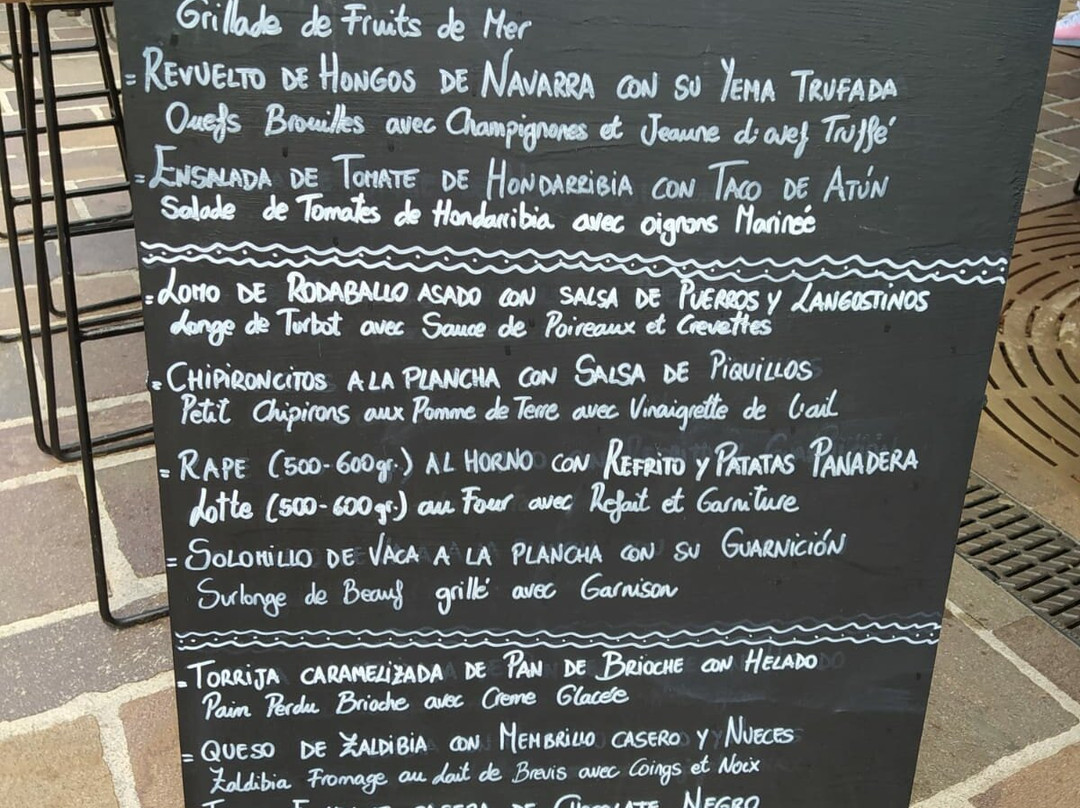 Grillade de Fruits de Mer
= REVUELTO DE HONGOS DE NAVARRA CON SU YEMA TRUFADA
Ouefs Brouilles avec Champignones et Jeaune d'avef Truffé
= ENSALADA DE TOMATE DE HONDARRIBIA CON TACO DE ATÚN
Salade de Tomates de Hondarribia avec oignons Marineé
= LOMO DE RODABALLO ASADO CON SALSA DE PUERROS Y LANGOSTINOS
Longe de Turbot avec Sauce de Poireaux et Crevettes
= CHIPIRONCITOS A LA PLANCHA CON SALSA DE PIQUILLOS
Petit Chipirons aux Pomme de Terre avec Vinaigrette de l'ail
= RAPE (500-600gr.) AL HORNO CON REFRITO Y PATATAS PANADERA
Lotte (500-600gr.) au Four avec Refait et Garniture
= SOLOMILLO DE VACA A LA PLANCHA CON SU GUARNICIÓN
Surlonge de Beauf grillé avec Garnison
= TORRIJA CARAMELIZADA DE PAN DE BRIOCHE CON HELADO
Pain Perdu Brioche avec Creme Glacee
= QUESO DE ZALDIBIA CON MEMBRILLO CASERO Y NUECES
Zaldibia Fromage au Lait de Brevis avec Coings et Noix
DE CHOCOLATE NEGRO